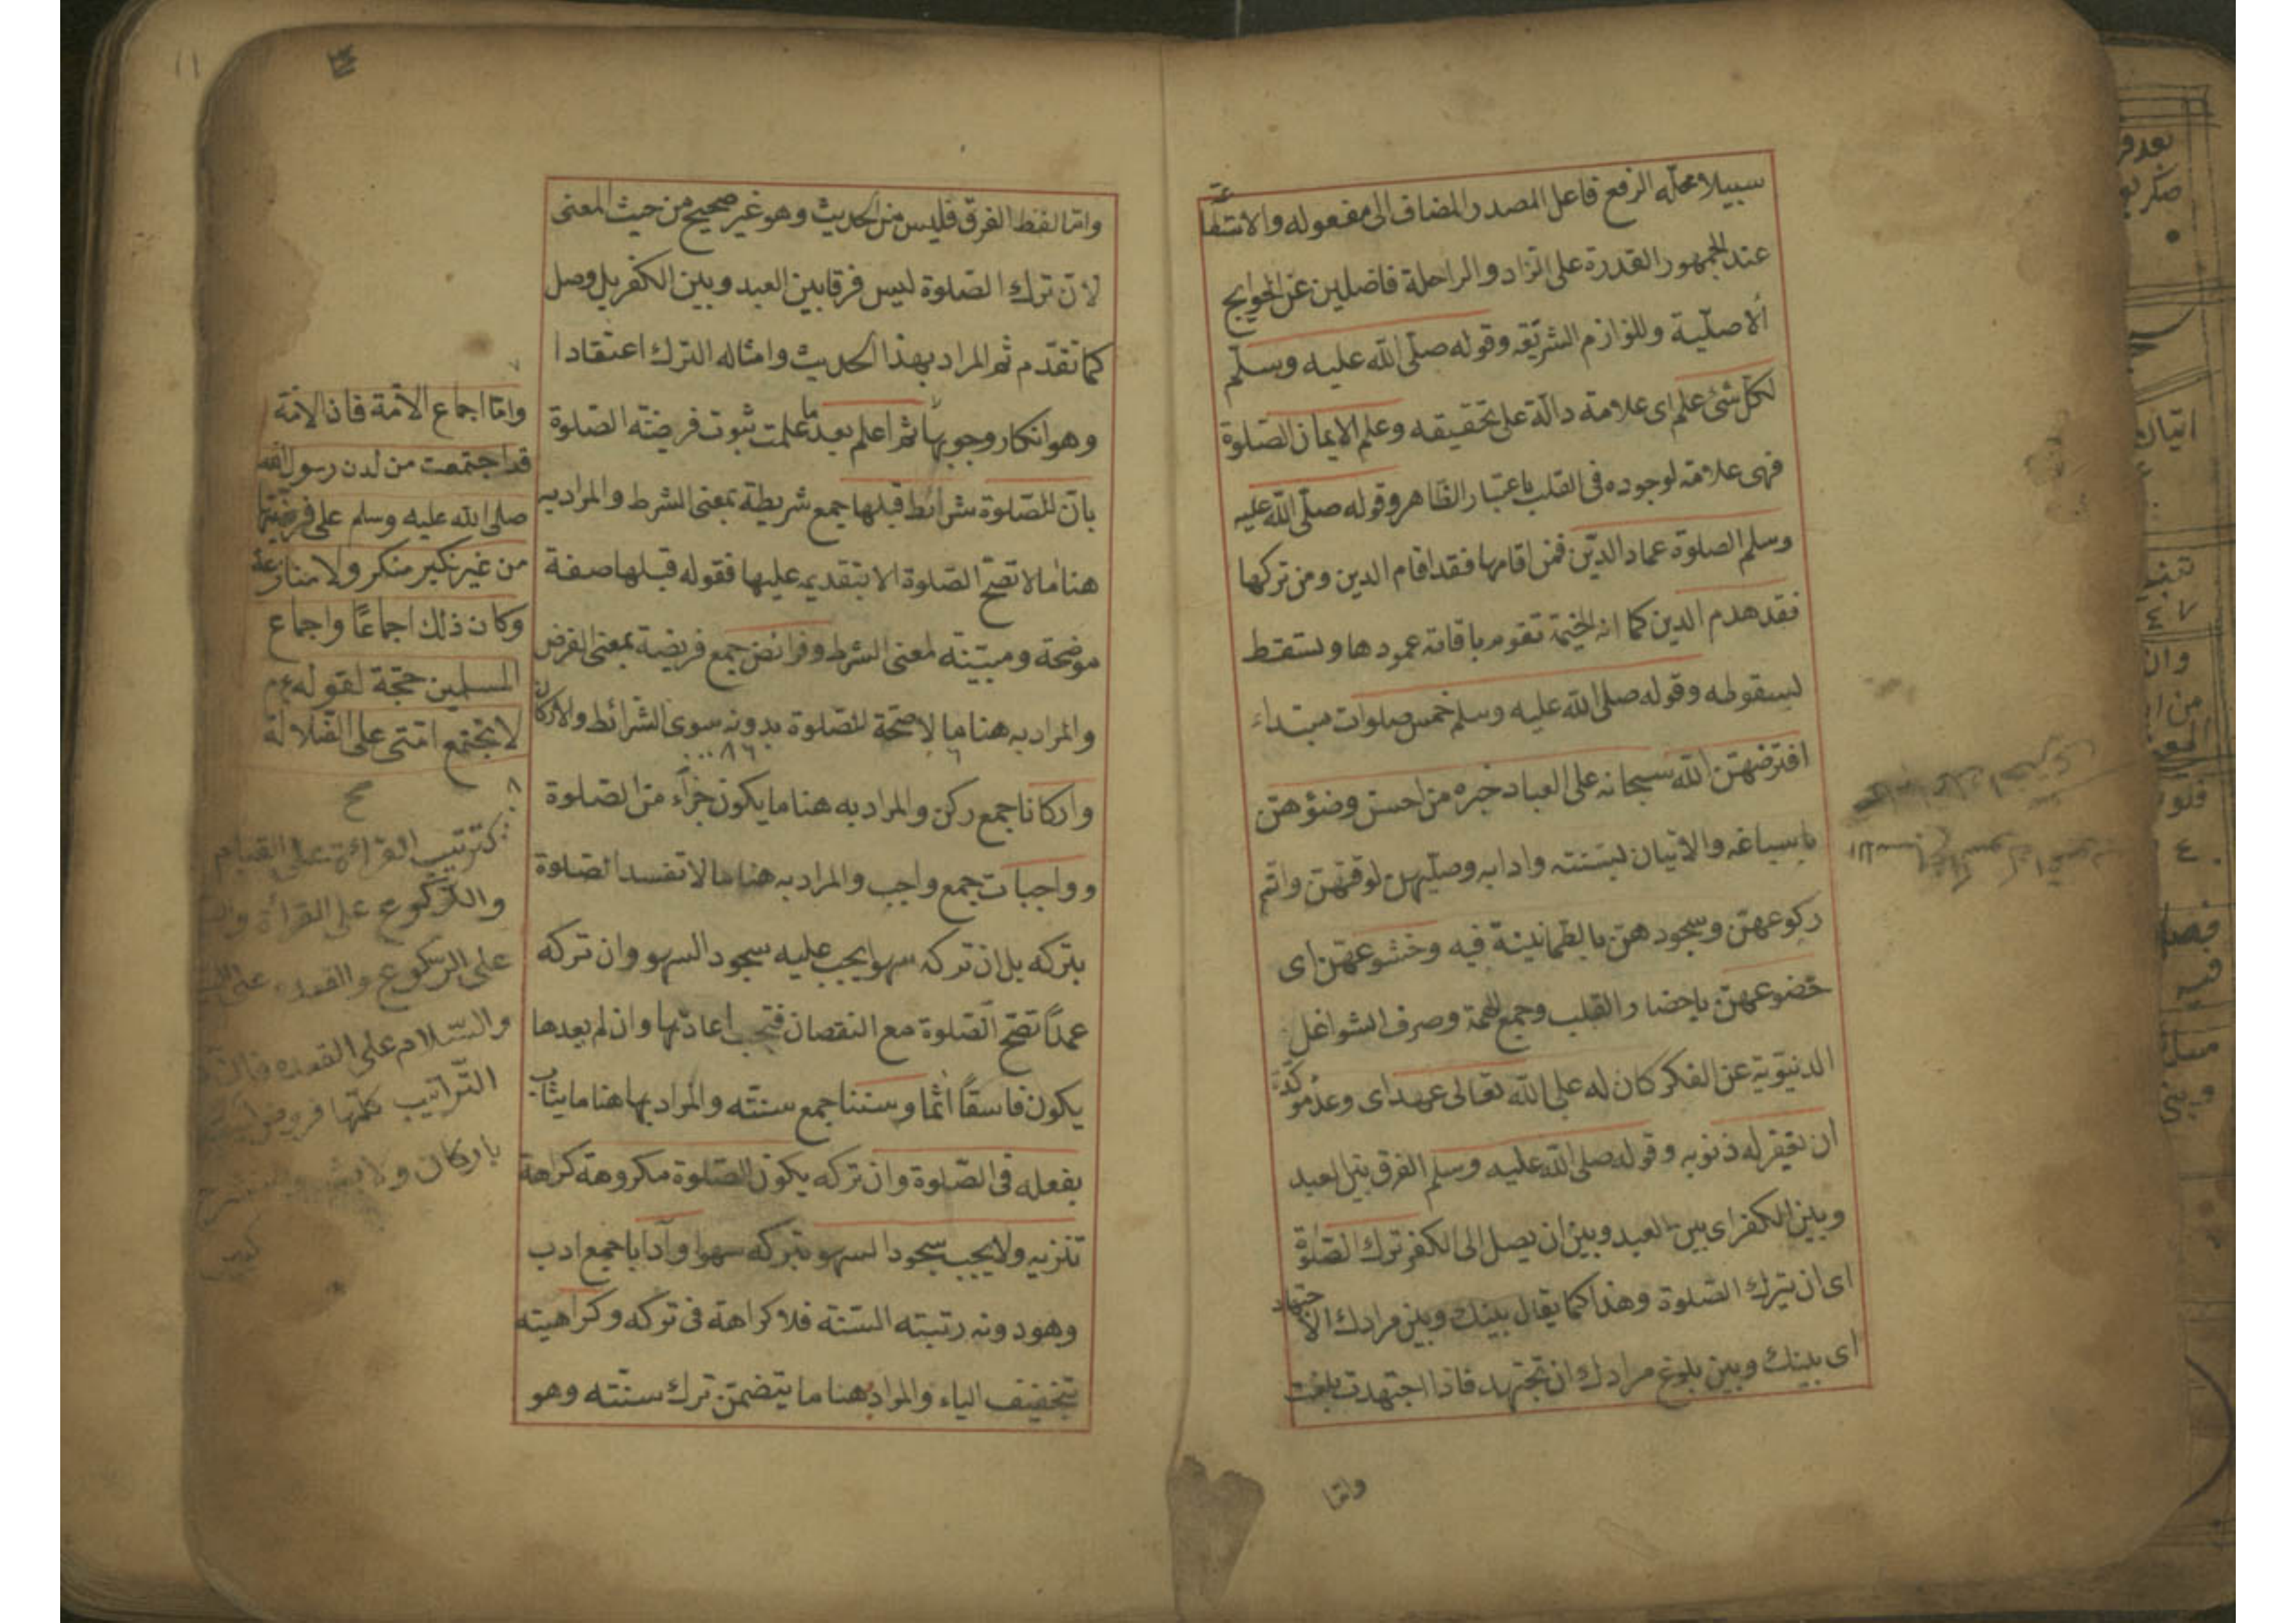 سبيلا محله الرفع فاعل المصدر المضاف الى مفعوله والاستطاعة
عند الجمهور القدرة على الزاد والراحلة فاضلين عن الحوايج
الاصلية وللوازم الشريعة وقوله صلّى الله عليه وسلّم
لكل شئ علم اى علامة دالّة على تحقيقه وعلم الايمان الصلوة
فهى علامة لوجوده فى القلب باعتبار الظاهر وقوله صلّى الله عليه
وسلم الصلوة عماد الدين فمن اقامها فقد اقام الدين ومن تركها
فقد هدم الدين كما ان الخيمة تقوم باقامة عمودها وتسقط
لسقوطه وقوله صلى الله عليه وسلم خمس صلوات مبتداء
افترضهنّ الله سبحانه على العباد خبره من احسن وضؤهنّ
باسباغه والاتيان لسننه وادابه وصلّيهن لوقتهنّ واتم
ركوعهنّ وسجودهنّ بالطمانينة فيه وخشوعهنّ اى
خضوعهنّ باحضار القلب وجمع الهمة وصرف الشواغل
الدنيوية عن الفكر كان له على الله تعالى عهد اى وعد مؤكد
ان يغفر له ذنوبه وقوله صلى الله عليه وسلم الفرق بين العبد
وبين الكفر اى بين العبد وبين ان يصل الى الكفر ترك الصلوة
اى ان يترك الصلوة وهذا كما يقال بينك وبين مرادك الاجتهاد
اى بينك وبين بلوغ مرادك ان تجتهد فاذا اجتهدت بلغت
وامّا
وامّا لفظ الفرق فليس من الحديث وهو غير صحيح من حيث المعنى
لانّ ترك الصلوة ليس فرقا بين العبد وبين الكفر بل وصل
كما تقدّم ثم المراد بهذا الحديث وامثاله الترك اعتقادا
وهو انكار وجوبها ثم اعلم بعد ما علمت ثبوت فرضية الصلوة
بان للصلوة شرائط قبلها جمع شريطة بمعنى الشرط والمراد به
هنا ما لا تصحّ الصلوة الا بتقديمه عليها فقوله قبلها صفة
موضحة ومبيّنة لمعنى الشرط وفرائض جمع فريضة بمعنى الفرض
والمراد به هنا ما لا صحّة للصلوة بدونه سوى الشرائط والاركان
واركانا جمع ركن والمراد به هنا ما يكون جزاء من الصلوة
وواجبات جمع واجب والمراد به هنا ما لا تفسد الصلوة
بتركه بل ان تركه سهوا يجب عليه سجود السهو وان تركه
عمداً تصحّ الصلوة مع النقصان فتجب اعادتها وان لم يعدها
يكون فاسقاً اثما وسننا جمع سنته والمراد بها هنا ما يثاب
بفعله فى الصلوة وان تركه يكون الصلوة مكروهة كراهة
تنزيه ولا يجب سجود السهو بتركه سهوا وآدابا جمع ادب
وهو دونه رتبته السنة فلا كراهة فى تركه وكراهيته
بتخفيف الياء والمراد هنا ما يتضمن ترك سنّته وهو
وامّا اجماع الامّة فان الامّة
قد اجتمعت من لدن رسول الله
صلى الله عليه وسلم على فرضيّتها
من غير نكير منكر ولا منازعة
وكان ذلك اجماعًا واجماع
المسلمين حجّة لقوله عم
لا تجتمع امّتى على الضلالة
كترتيب القرائة على القيام
والركوع على القرأة
على الركوع والقعده
والسّلام على القعده فان
التّراتيب كلّها فروض ليست
باركان